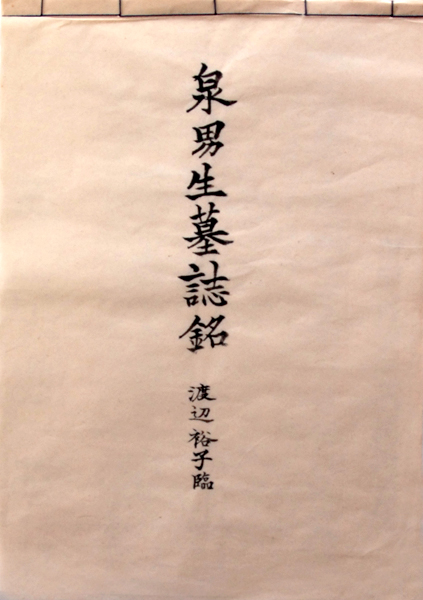 泉男生墓誌銘
渡辺裕子臨